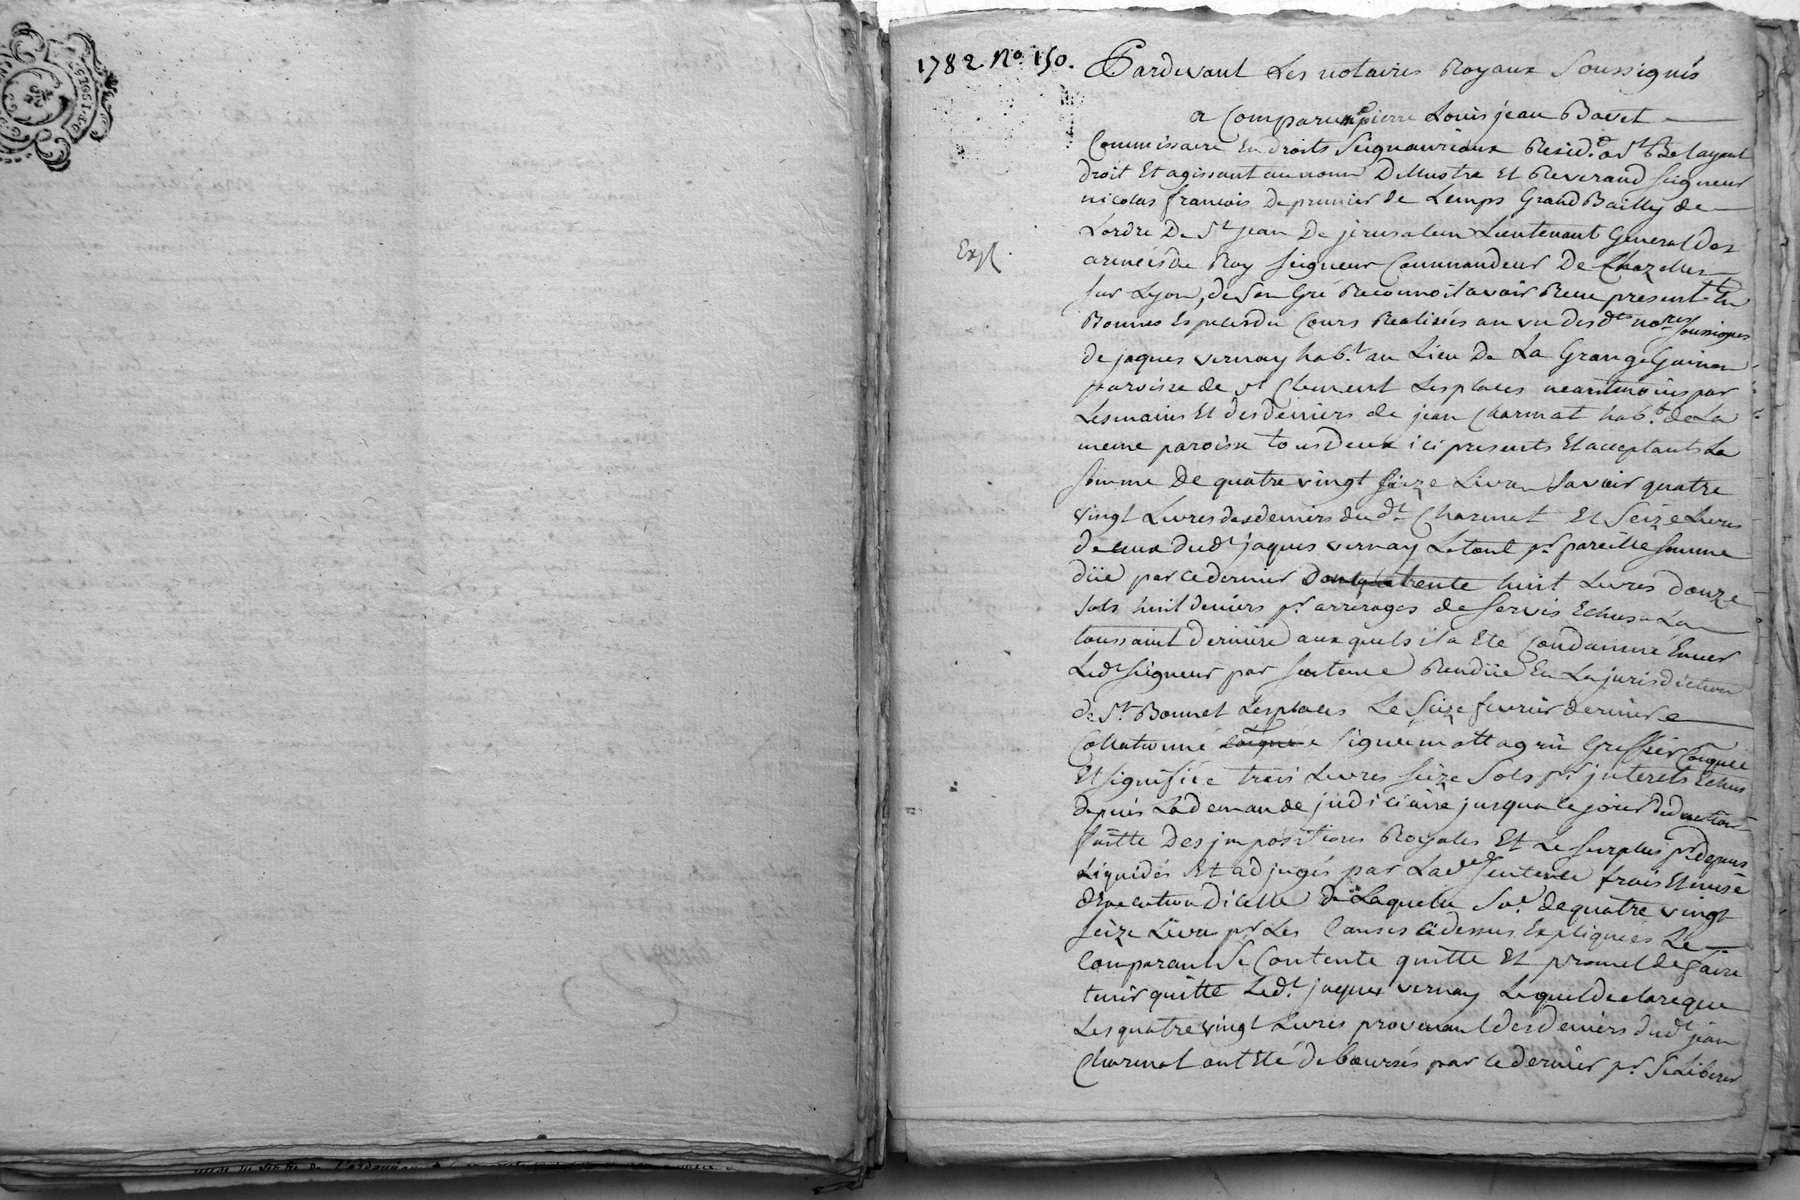 1782 No. 150.
Pardevant Les notaires Royaux Soussignés
a Comparu pierre Louis jean Bavet
Commissaire En droits Seigneuriaux Resid. a St ayant
droit Et agissant au nom D'illustre Et Reverand seigneur
nicolas francois De prunier de Lemps Grand Bailly de
Lordre De St jean De jerusalem Lieutenant General Des
armées du Roy seigneur Commandeur De Chazelles
sur Lyon, de Son Gré Reconnoit avoir Reçu presentt. En
Bonnes Especes du Cours Realisées au vu desdts nores soussignes
de jaques vernay habt. au Lieu De La Grange
paroisse de st Clement Lesplaces neantmoins par
Les mains Et des deniers de jean Charmat habt. de La
meme paroisse tous Deux ici presents Et acceptants La
somme De quatre vingt seize Livres Savoir quatre
vingt Livres des deniers du dt. Charmat Et Seize Livres
de ceux dudt jaques vernay Le tout pr. pareille somme
düe par ce dernier trente huit Livres douze
sols huit deniers pr. arrerages de servis Echus a La
toussaint derniere aux quels il a Eté Condamné Enver
Ledt seigneur par sentence Rendüe En La jurisdiction
de St. Bonnet Lesplaces Le Seize fevrier dernier
Collationné signé Greffier
Et signifiée trois Livres seize Sols pr. interets Echus
depuis La demande judiciaire jusqua ce jour
faitte Des impositions Royales Et Le surplus pr. depens
Liquidés Et adjugés par Lade. sentence frais Et mise
d'Execution D'icelle de Laquelle So.e de quatre vingt
seize Livres pr. Les Causes cidessus Expliquées Le
Comparant Se Contente quitte Et promet de faire
tenir quitte Ledt. jaques vernay Lequel declare que
Les quatre vingt Livres provenant des deniers dudt jean
Charmat ont Eté deboursés par ce dernier pr. se Liberer